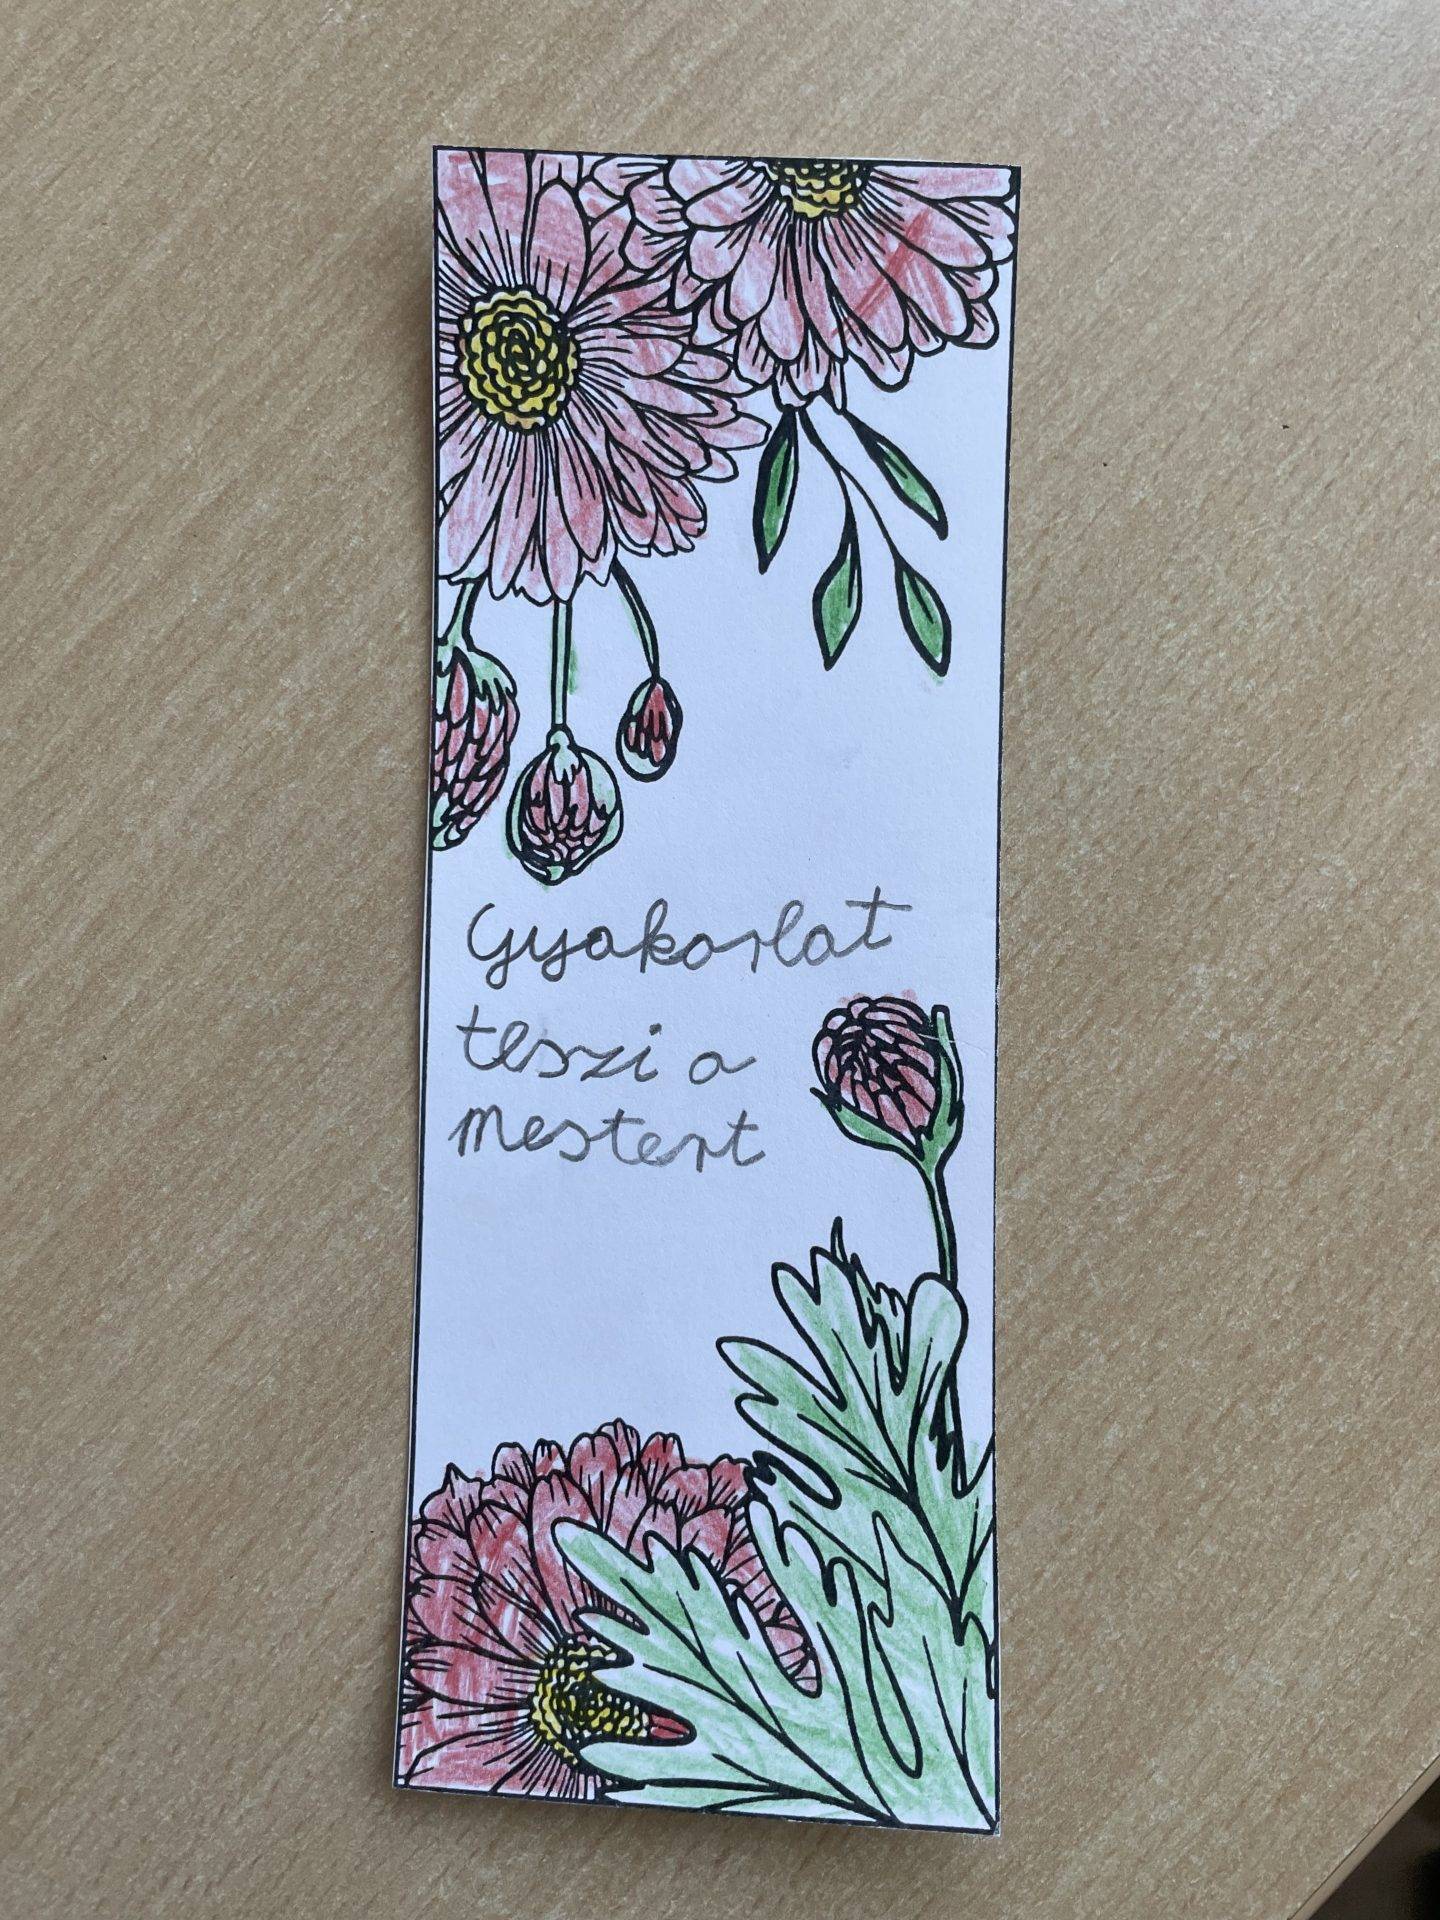 Gyakorlat
teszi a
mestert